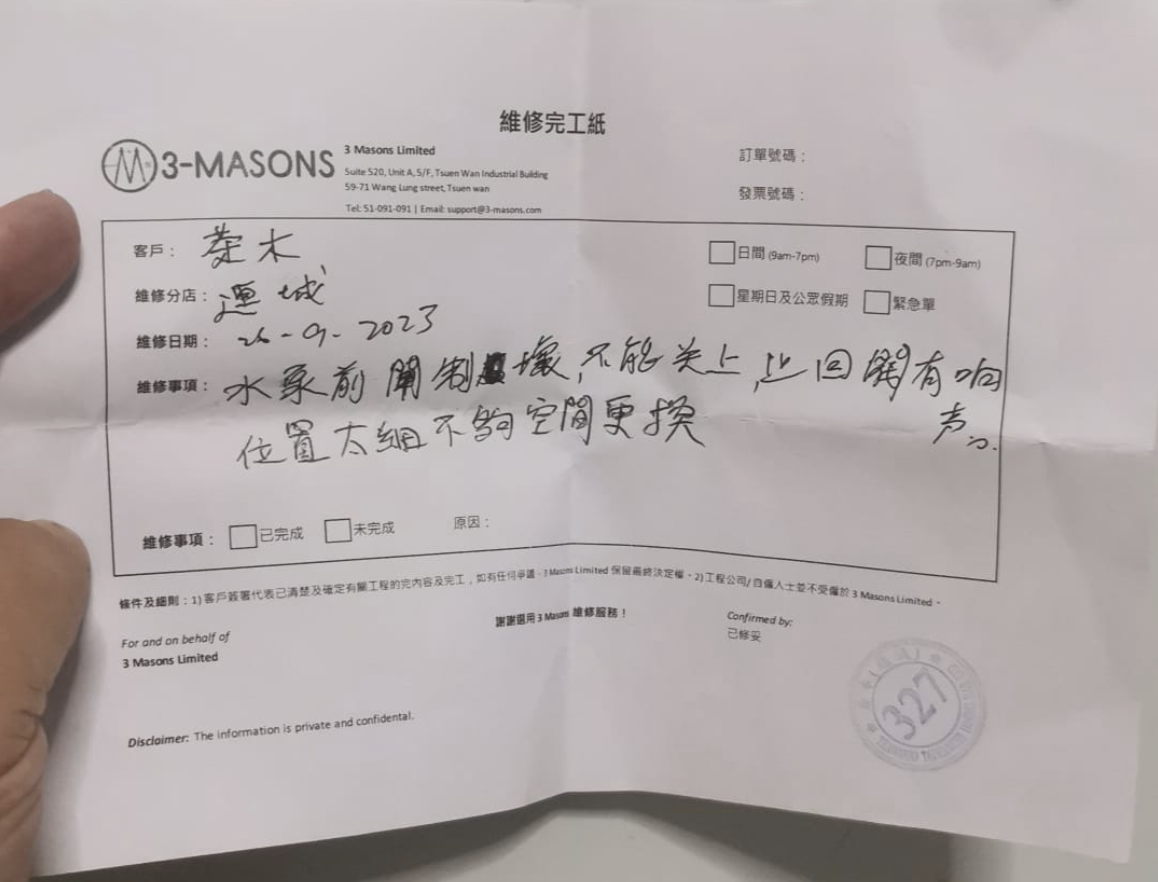 維修完工紙
3-MASONS
3 Masons Limited
Suite 520, Unit A, 5/F, Tsuen Wan Industrial Building
59-71 Wang Lung street, Tsuen wan
Tel: 51-091-091 | Email: support@3-masons.com
訂單號碼：
發票號碼：
客戶： 茶木
維修分店： 運城
維修日期： 26-9-2023
日間 (9am-7pm) 夜間 (7pm-9am)
星期日及公眾假期 緊急單
維修事項： 水泵前閘制壞,不能关上,止回閥有响
声.
位置太細不夠空間更換
維修事項： 已完成 未完成 原因：
條件及細則：1) 客戶簽署代表已清楚及確定有關工程的完內容及完工，如有任何爭議，3 Masons Limited 保留最終決定權。2) 工程公司/自僱人士並不受僱於 3 Masons Limited。
謝謝選用 3 Masons 維修服務！
For and on behalf of
3 Masons Limited
Confirmed by:
已修妥
327
Disclaimer: The information is private and confidental.